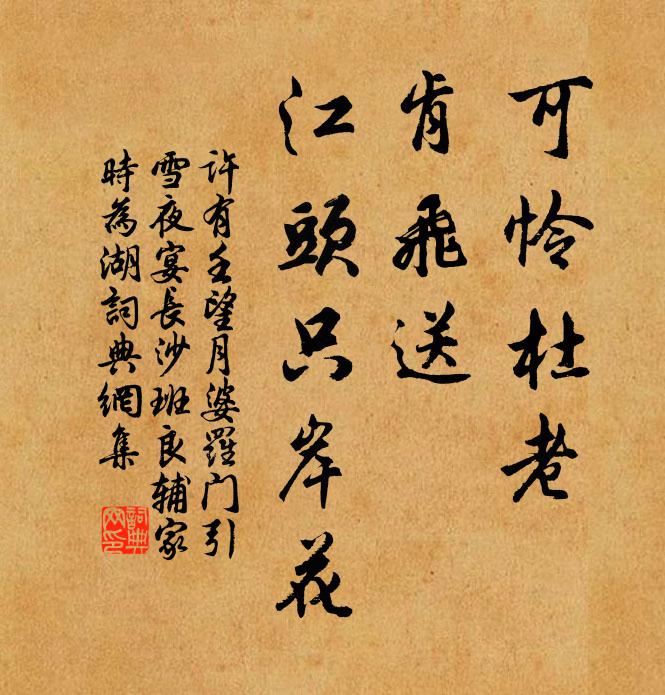 可怜杜老
肯飛送
江頭只岸花
许有壬望月婆羅门引
雪夜宴長沙班良辅家
時為湖詞典網集
詞典